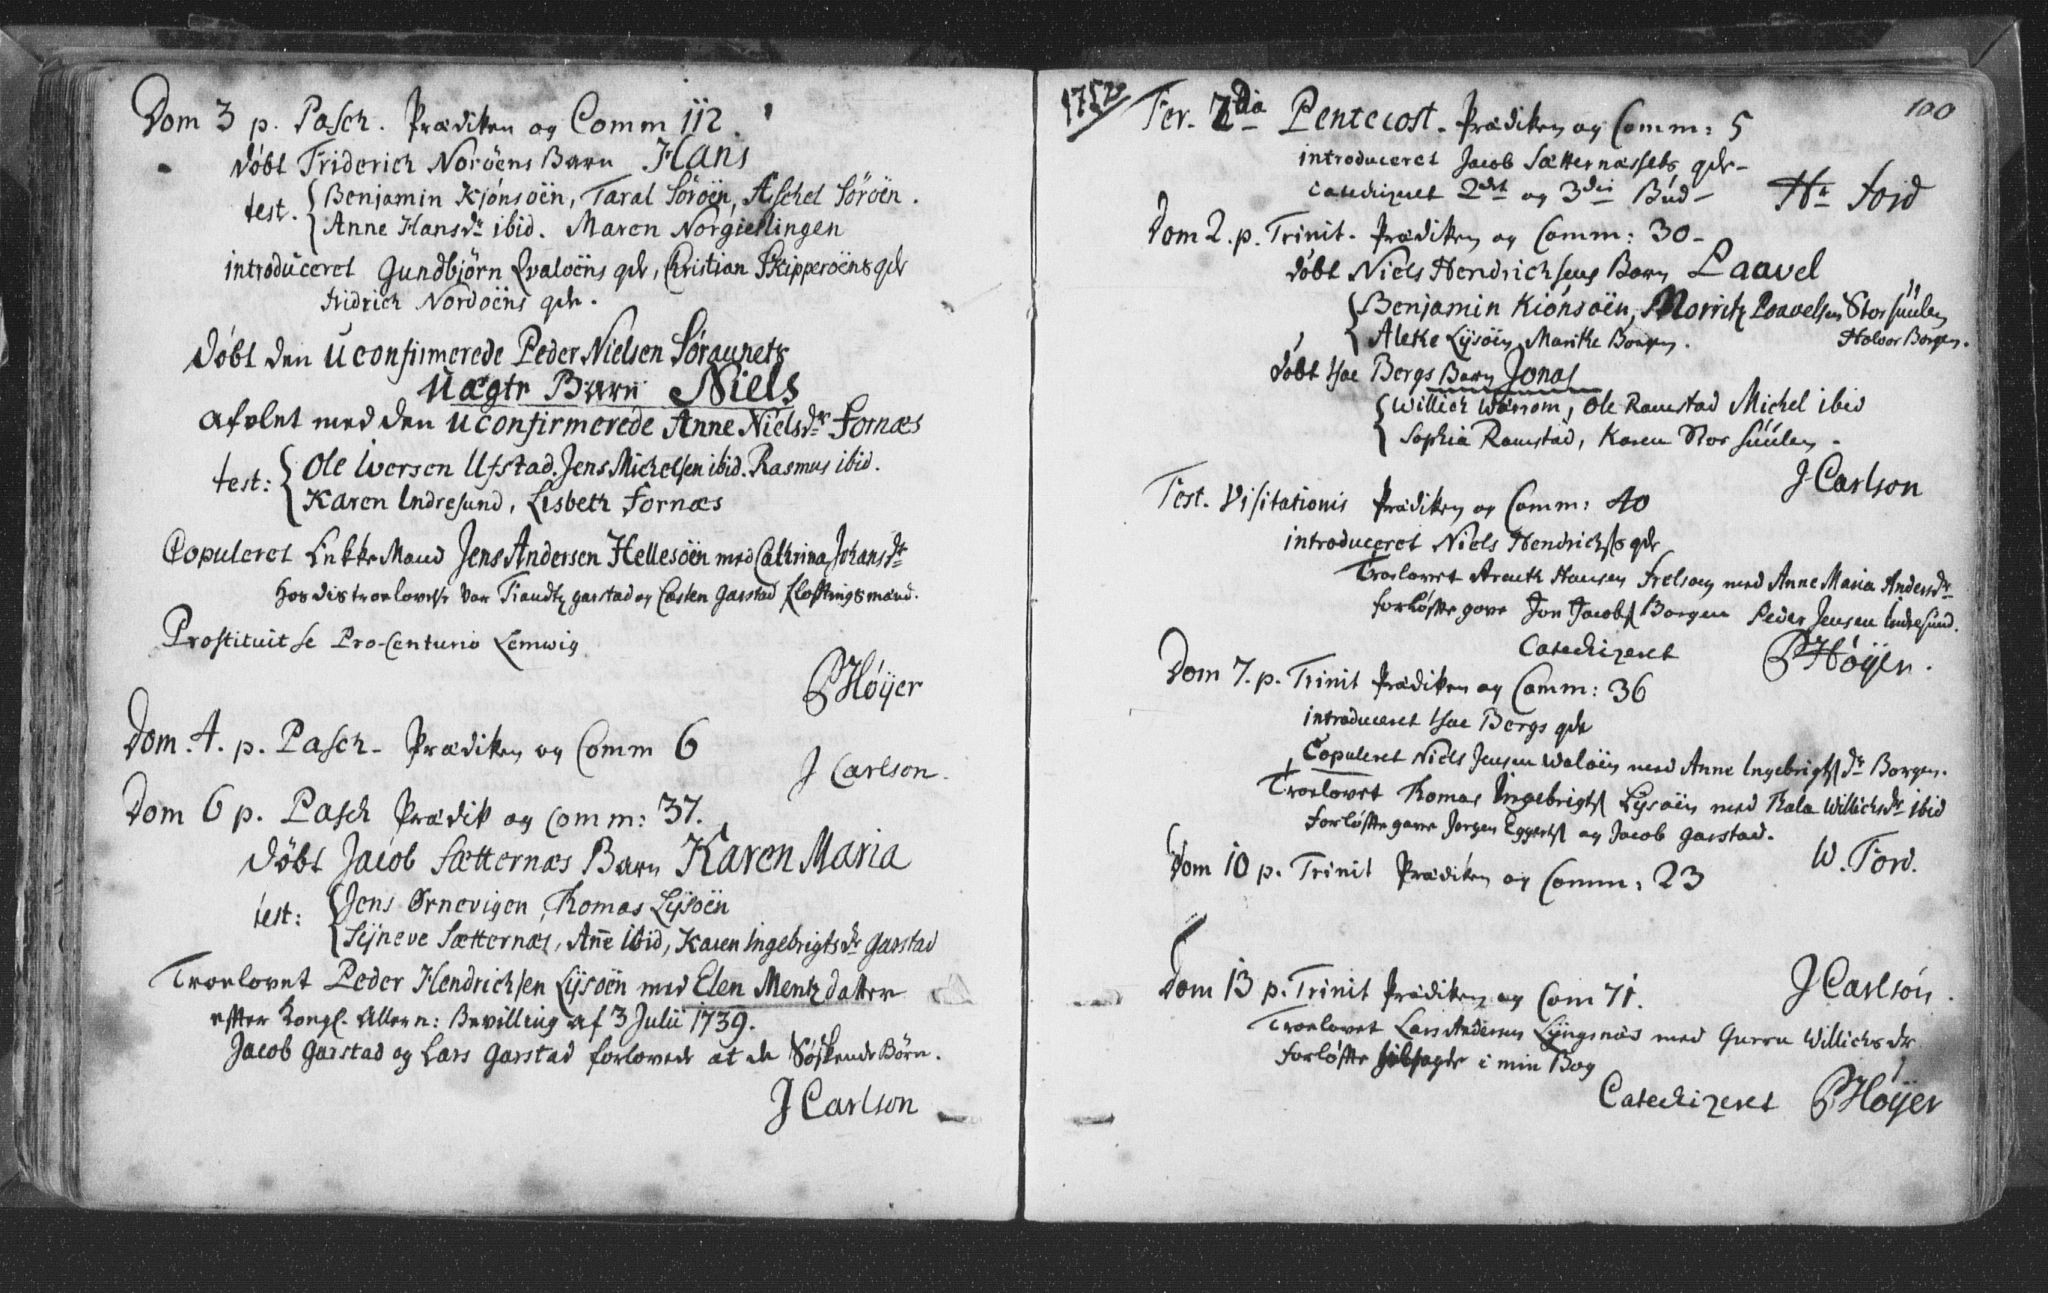 Dom 3 p. Pasch. Prædiken og Comm 112.
døbt Friderich Norøens Barn Hans
test. Benjamin Kjønsøen, Taral Sørøen, Aschel Sørøen.
Anne Hansdr ibid. Maren Norgiellingen
introduceret Gundbjørn Qvaløens qde, Christian Skipperøens qde
fridrich Nordøens qde.
Døbt den Uconfirmerede Peder Nielsen Søraunets
Uægte Barn Niels
Aflet med den Uconfirmerede Anne Nielsdr Fornæs
test: Ole Iversen Ufstad. Jens Michelsen ibid. Rasmus ibid.
Karen Indresund, Lisbeth Fornæs
Copuleret Enkke Mand Jens Andersen Hellesøen med Cathrina Johansdr
Hos dis trolovelse var garstad og Casten Garstad
Prostituit se Pro-Centurio Lemvig
PHøijer
Dom. 4. p. Pasch. Prædiken og Comm 6
J Carlson.
Dom 6 p. Pasch Prædik og Comm: 37.
døbt Jacob Sætternæs Barn Karen Maria
test: Jens Ørnevigen, Thomas Lysøen
Sijneve Sætternæs, Añe ibid, Karen Ingebrigtsdr Garstad
Trolovet Peder Hendrichsen Lysøen med Elen Mentzdatter
efter Kongl. Allern: Bevilling af 3 Julii 1739.
Jacob Garstad og Lars Garstad forlovede at de Søskende Børn.
J Carlson
1752 100
Fer. 2da Pentecost. Prædiken og Comm: 5
introduceret Jacob Sætternæssets qde
catechizeret 2det og 3die Bud Hr Ford
Dom 2. p. Trinit. Prædiken og Comm: 30
døbt Niels Hendrichsens Barn Paavel
Benjamin Kiønsøen, Morritz Paavelsen Storsuulen
Aleke Lysøen, Marike Borgen. Halvor Borgen.
døbt Isac Bergs Barn Jonas
Willich Ole Ramstad Michel ibid
Sophia Ramstad, Karen Stor suulen
J Carlson
Fest. Visitationis Prædiken og Comm: 40
introduceret Niels Hendrichss qde
Trolovet Arent Hansen Frelsøen med Anne Maria Andersdr
forløfte gave Jon Jacobs Borgen Peder Jensen Indresund.
Catechizeret PHøijer.
Dom 7. p. Trinit Prædiken og Comm: 36
introduceret Isac Bergs qde
Copuleret Niels Jensen Waløen med Anne Ingebrigtsdr Borgen.
Trolovet Thomas Ingebrigts Lysøen med Thala Willichsdr ibid
forløfte gave Jørgen Eggerts og Jacob Garstad.
W. Ford.
Dom 10 p. Trinit Prædiken og Comm: 23
J Carlson.
Dom 13 p. Trinit Prædiken og Com 71.
Trolovet Lars Andersen Lyngsnæs med Gurru Willichsdr
forløfte i min Bog
Catechizeret PHøijer